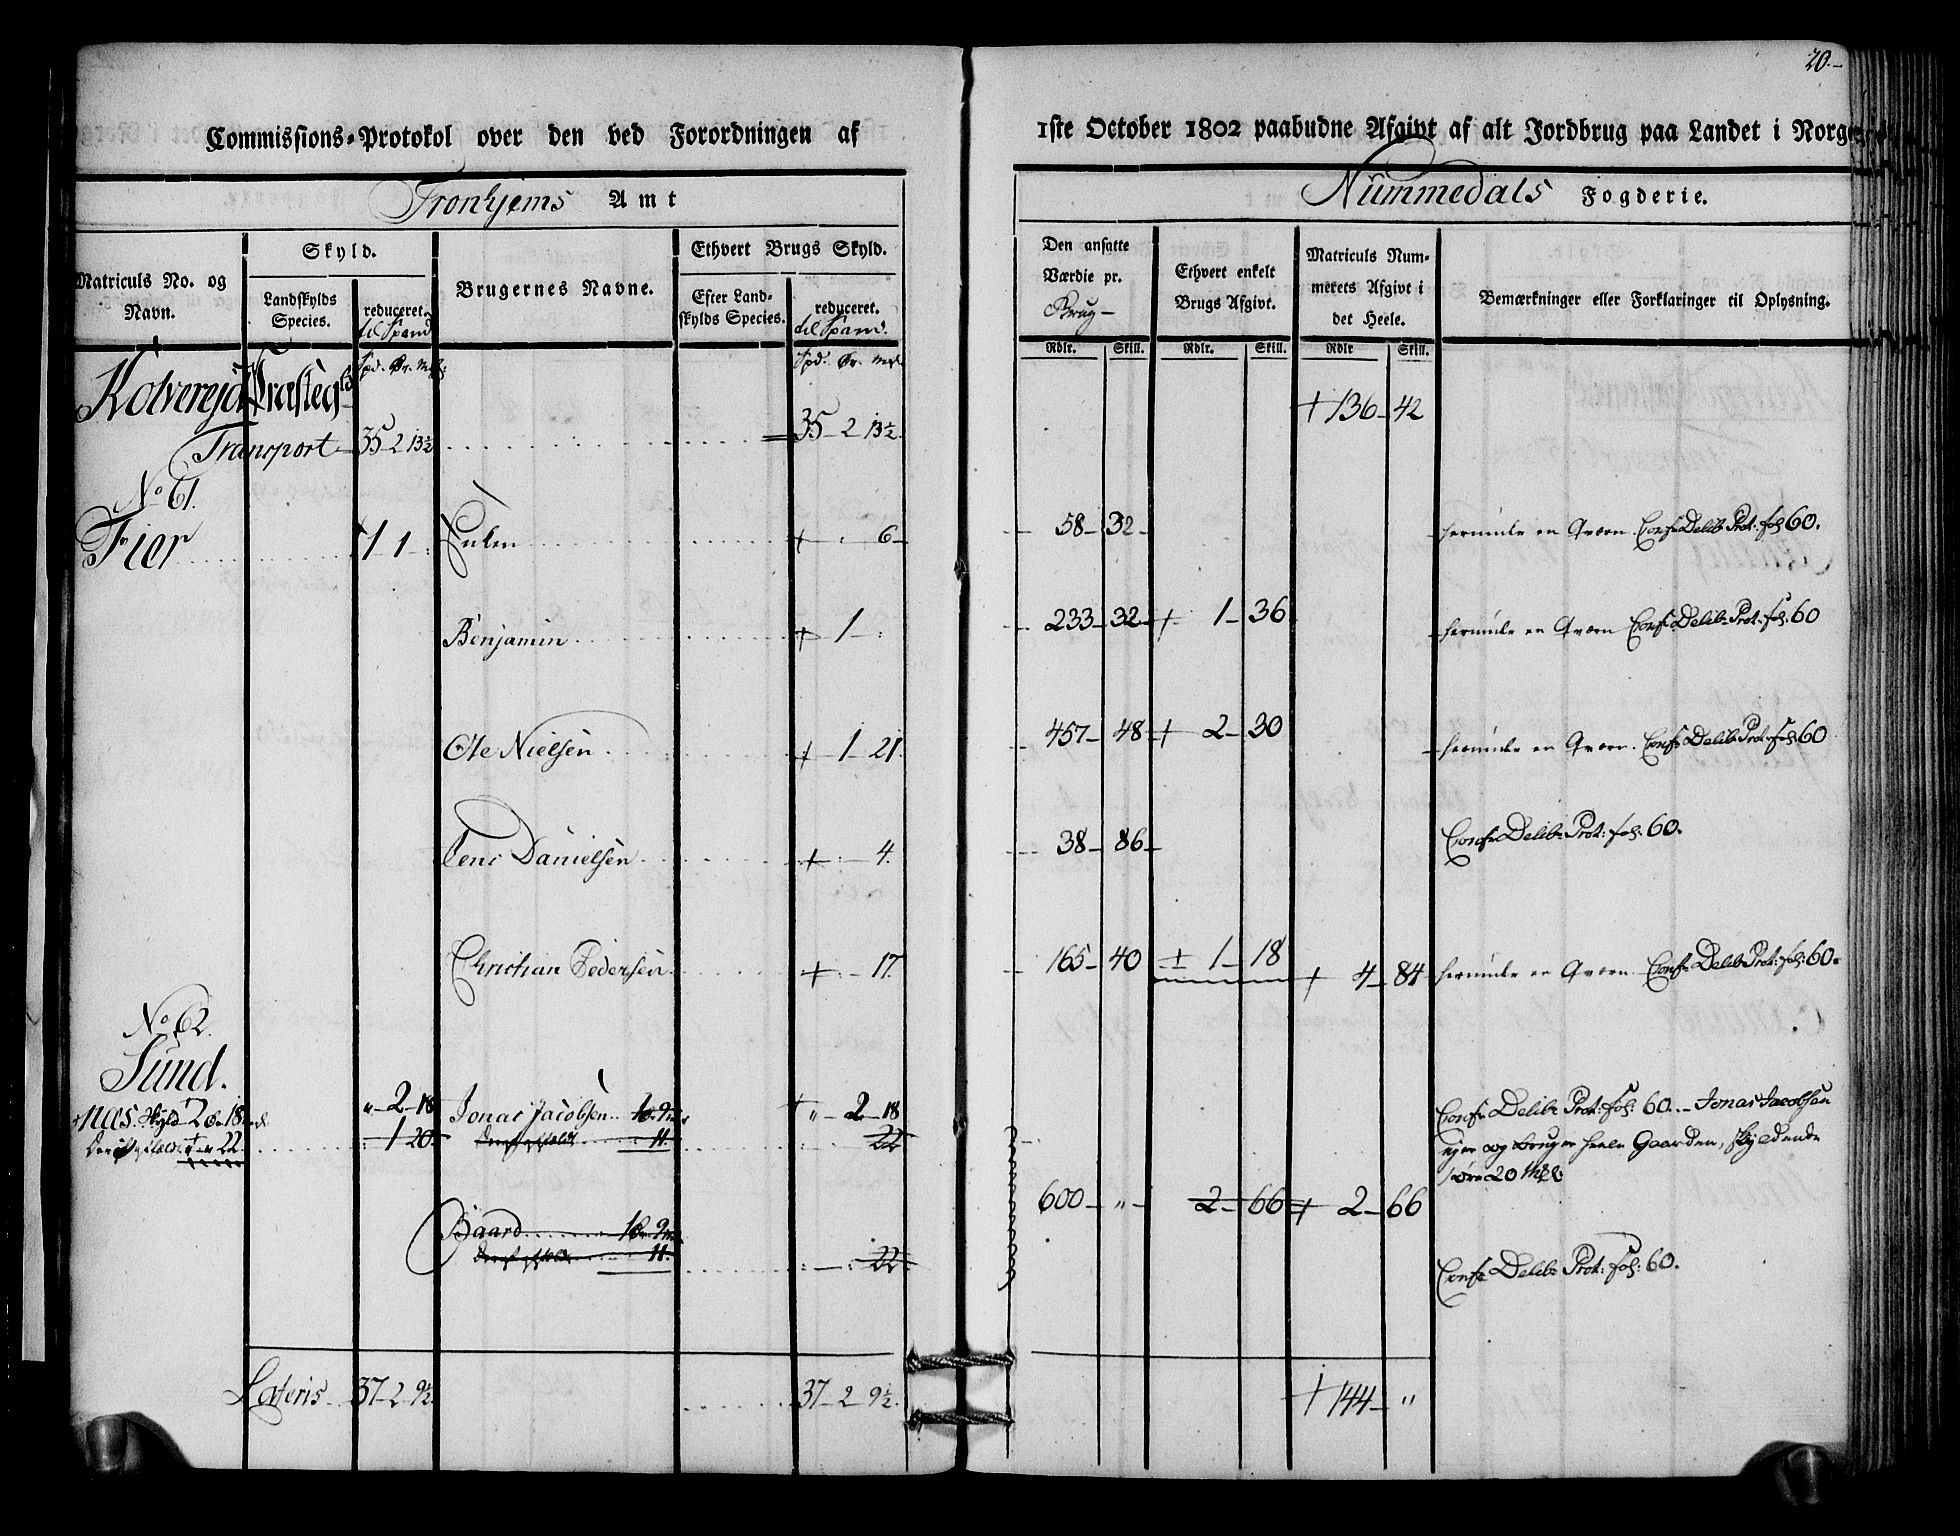 20.-
Commissions-Protokol over den ved Forordningen af 1ste October 1802 paabudne Afgivt af alt Jordbrug paa Landet i Norge
Tronhjems Amt
Nummedals Fogderie.
Matriculs No. og Navn.
Skyld.
Landskylds Species.
reduceret til Spand
Brugernes Navne.
Ethvert Brugs Skyld.
Efter Landskylds Species.
reduceret. til Spand.
Den ansatte Værdie pr. Brug-
Ethvert enkelt Brugs Afgivt.
Matriculs Nummerets Afgivt i det Heele.
Bemærkninger eller Forklaringer til Oplysning.
Rdlr. Skill. Rdlr. Skill. Rdlr Skill.
Kolvereid Præsteg
+ 136 - 42
Transport 35 - 2 13½ 35 - 2 13½
No 61.
Fier 1 1 - : + : 6 - 58 - 32 - herunder en Qværn Confr Delib: Prot: fol 60.
Benjamin + 1 - : 233 - 32 + 1 - 36 herunder en Qværn Confr Delib: Prot: fol. 60
Ole Nielsen + 1 - 21. 457 - 48 + 2 - 30 herunder en Qværn. Confr Delib: Prot: fol 60
Jens Danielsen + : - 4. 38 - 86 Confr Delib: Prot: fol. 60.
Christian Pedersen + : - 17. 165 - 40 ± 1 - 18 + 4 - 84 herunder en Qværn Confr Delib: Prot: fol: 60.
No 62.
Sund.
Skyld 2 ø. 18 " - 2 - 18 Jonas Jacobsen 1 ø. 9 " - 2 - 18 Confr Delib: Prot: fol: 60. - Jonas Jacobsen
22 - 1 20 11. 22 ejer og bruger heele Gaarden, skyldende
2 øre 20 mkl:
600 - " - 2 - 66 + 2 - 66
Baard 1 ø. 9
11. : - : 22 Confr Delib: Prot: fol: 60.
Lateris 37 - 2 9½ 37 - 2 9½ + 144 - "